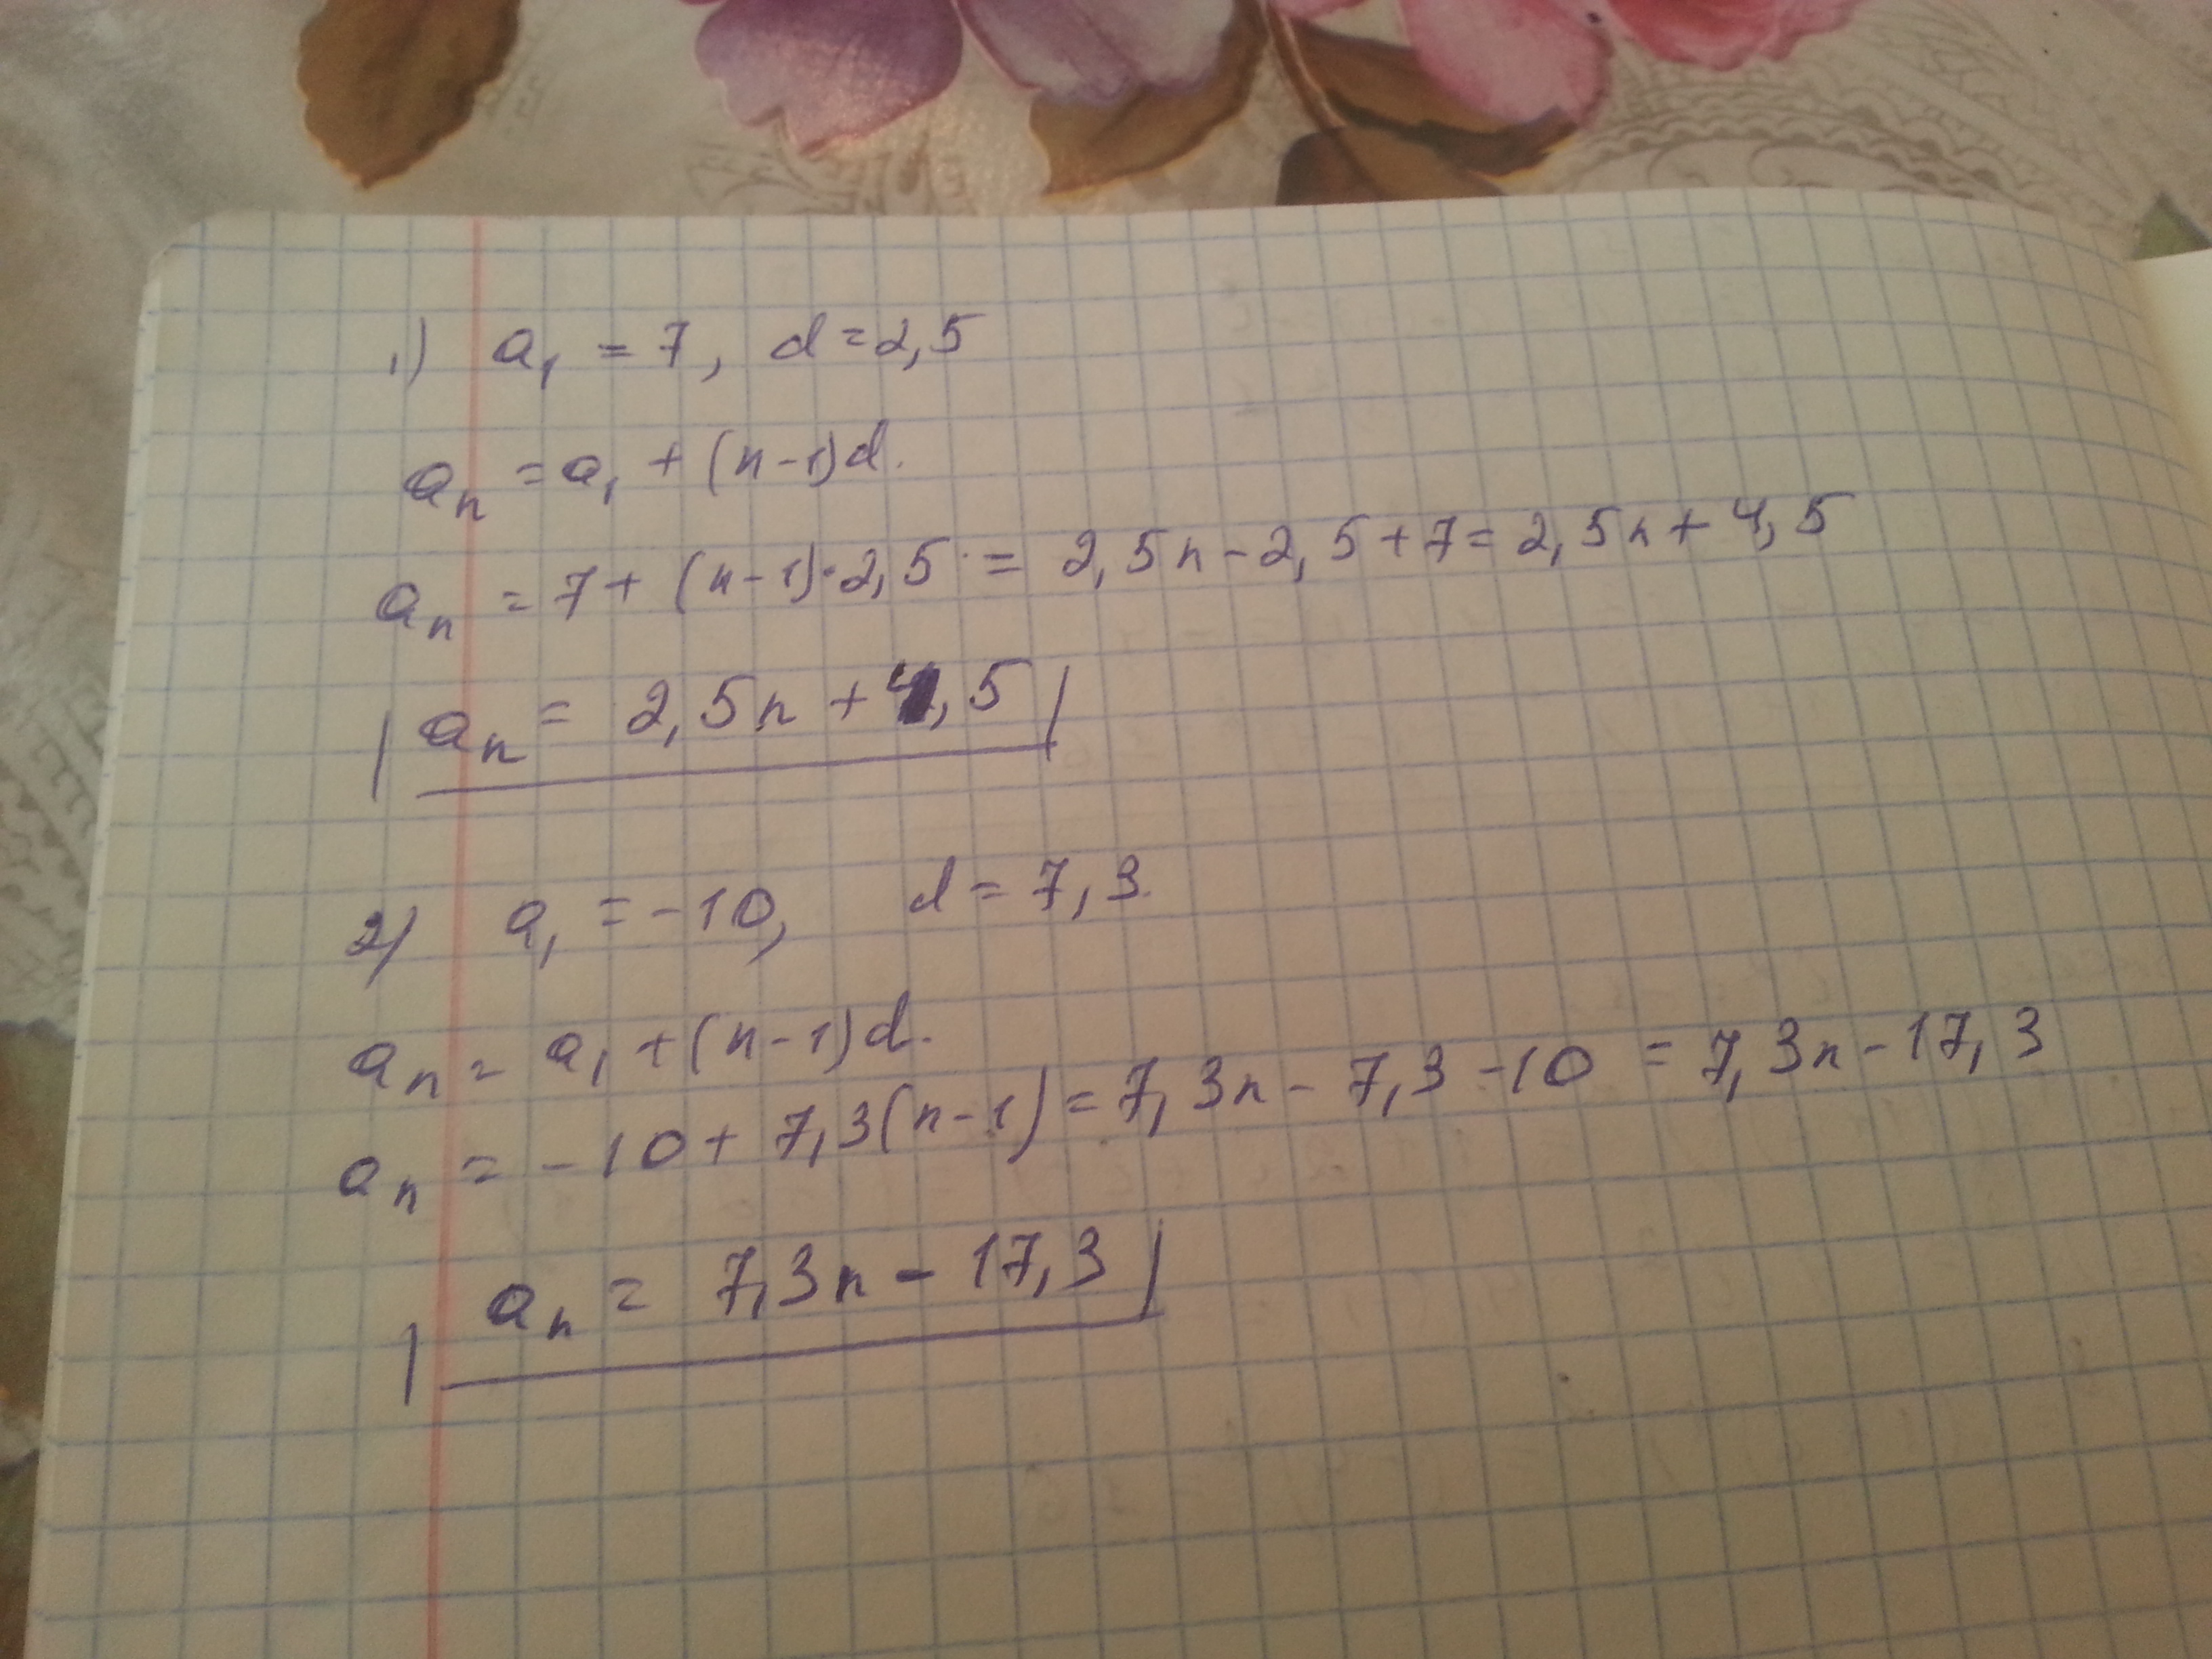 1) a₁ = 7, d = 2,5
aₙ = a₁ + (n-1)d.
aₙ = 7 + (n-1)·2,5 = 2,5n - 2,5 + 7 = 2,5n + 4,5
aₙ = 2,5n + 4,5
2) a₁ = -10, d = 7,3.
aₙ = a₁ + (n-1)d.
aₙ = -10 + 7,3(n-1) = 7,3n - 7,3 - 10 = 7,3n - 17,3
aₙ = 7,3n - 17,3